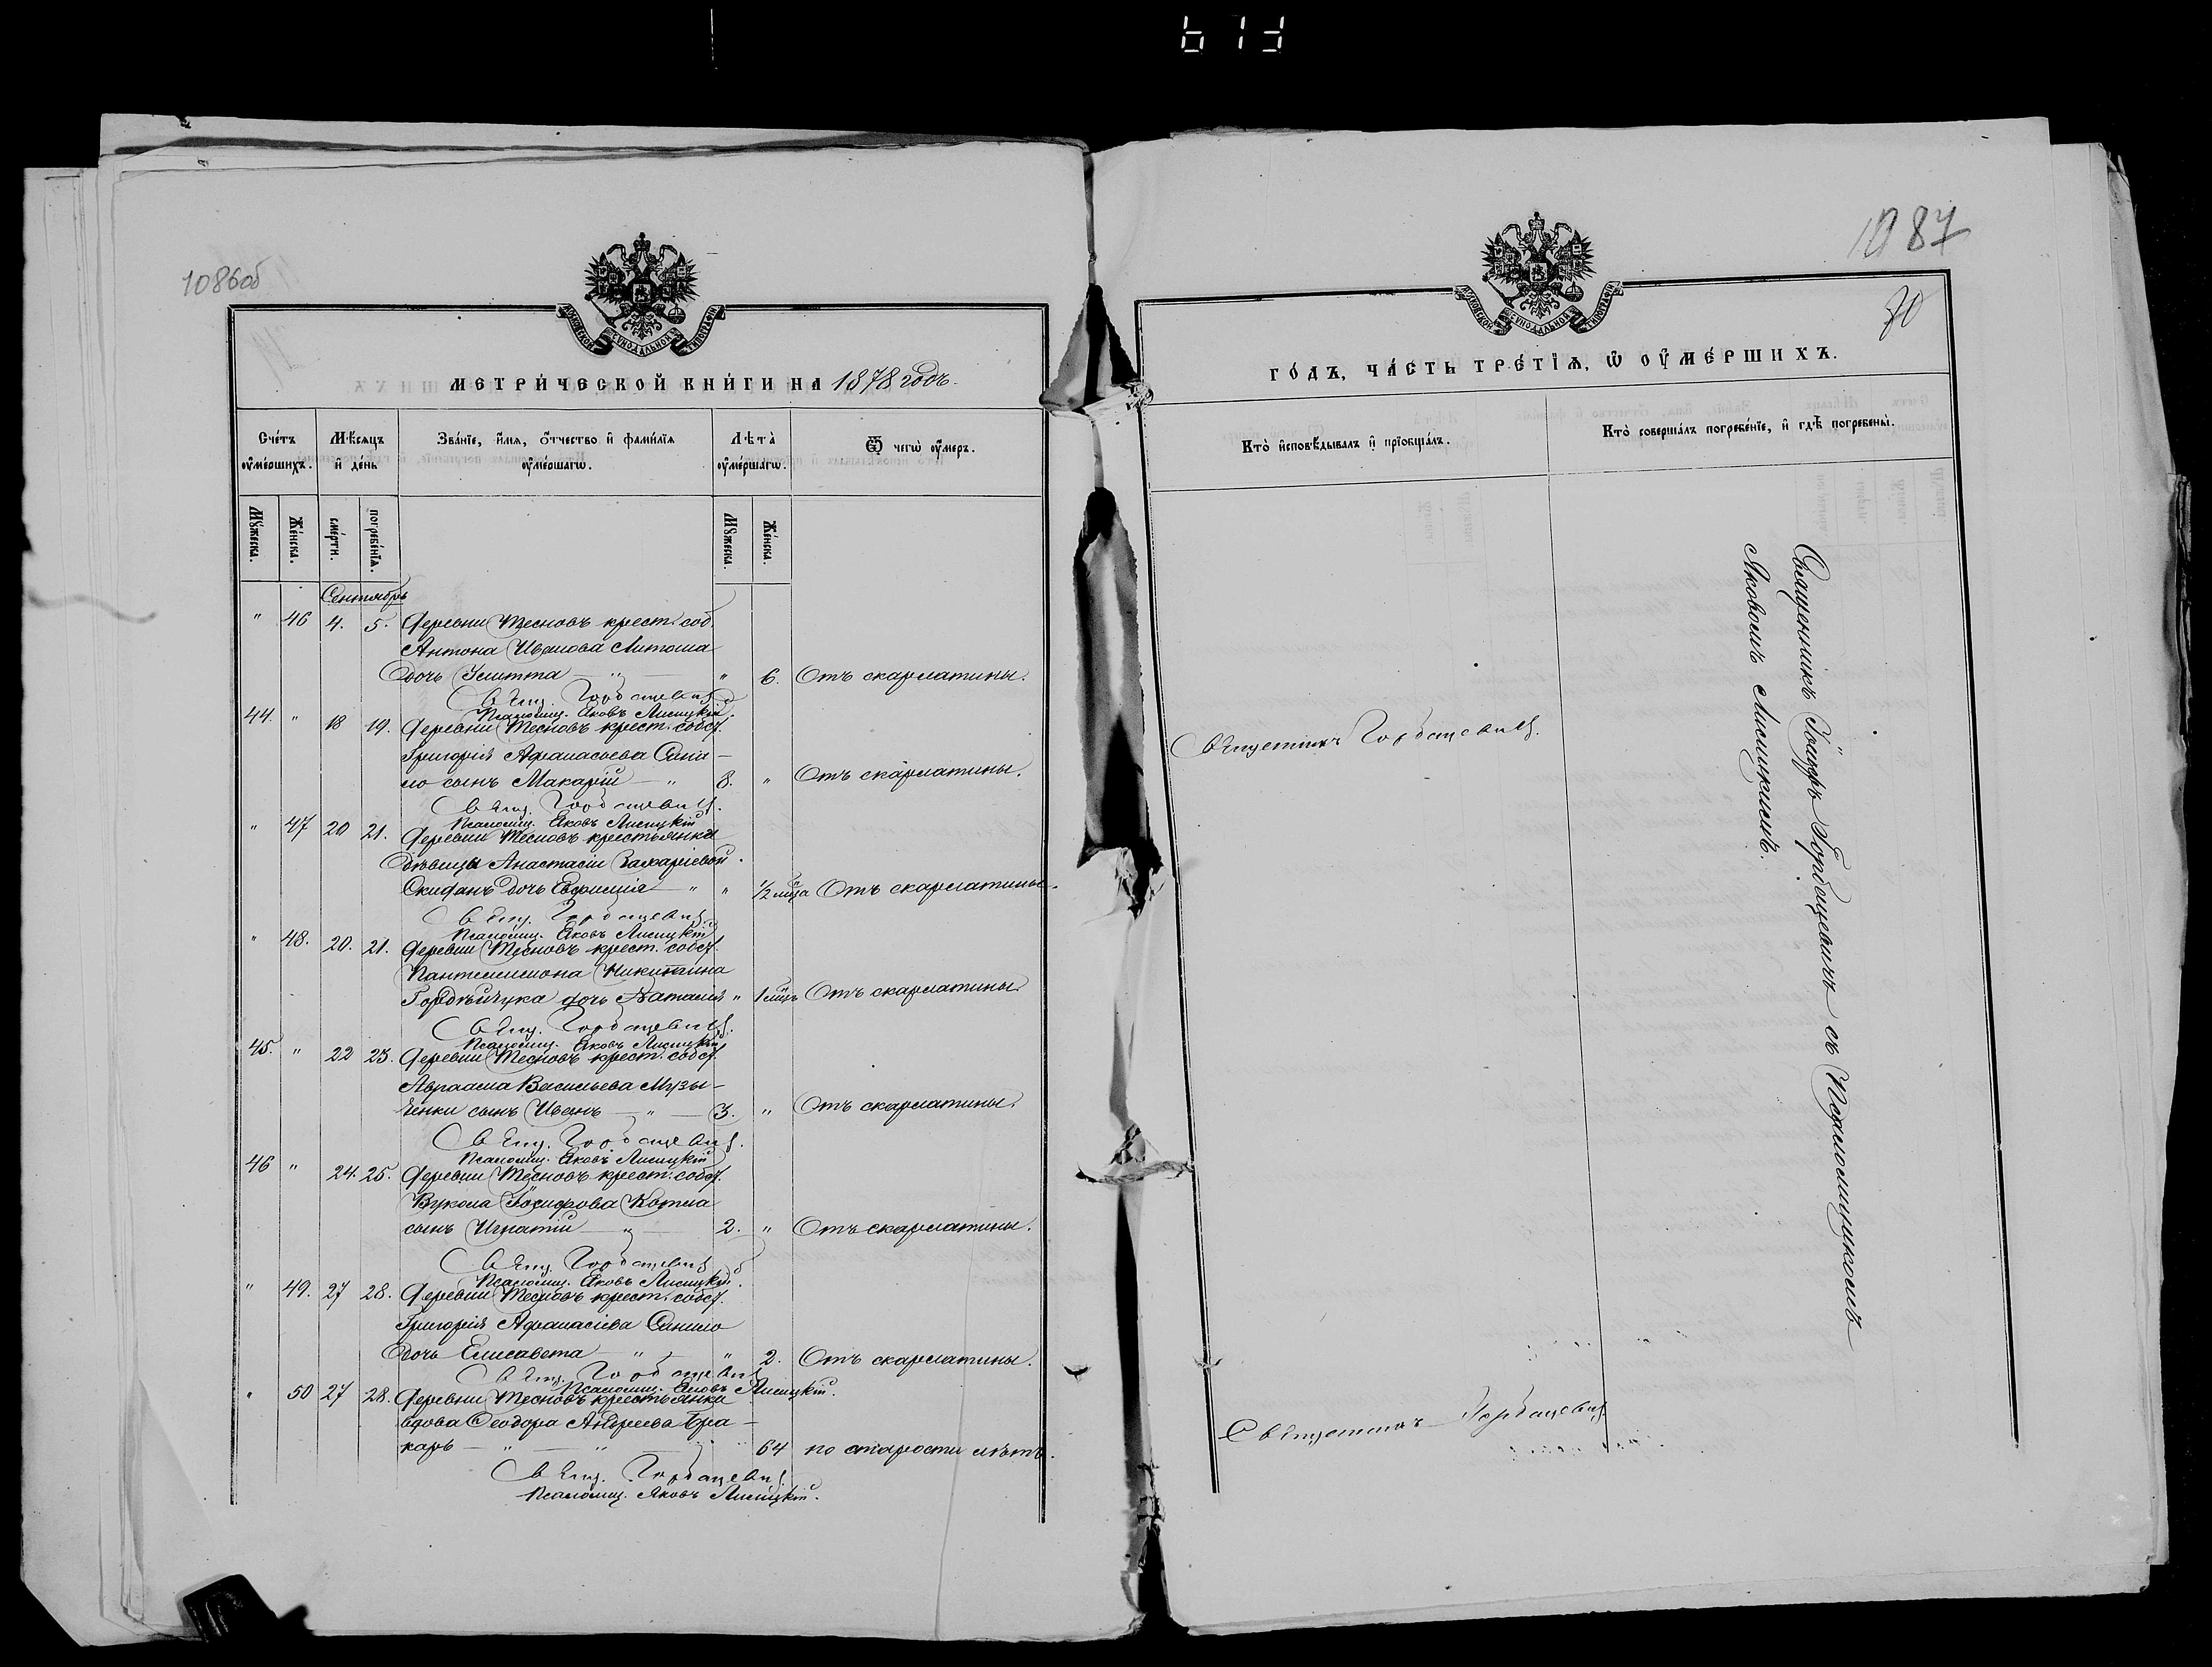 1086об
МОСКОВСКОЙ СѴНОДАЛЬНОЙ ТИПОГРАФІИ
МЕТРИ́ЧЕСКОЙ КНИ́ГИ НА 1878 годъ.
Сче́тъ ᲂумéршихъ.
Мѣ́сяцъ и де́нь
Зва́нїе, и҆́мя, ѻ҆́тчество и҆ фами́лїя ᲂу҆ме́ршагѡ.
Лѣ́та̀ ᲂу҆ме́ршагѡ.
Ѿ чегѡ̀ ᲂу҆́меръ.
Мꙋ́жеска.
Же́нска.
сме́рти.
погребе́нїѧ.
Мꙋ́жеска.
Же́нска.
Сентябрь
" 46 4. 5. Деревни Тесновъ крест. соб.
Антона Иванова
дочь " " 6. Отъ скарлатины.
Свящ. Горбацевич.
Псаломщ. Яковъ Лисицкій.
44. " 18 19. Деревни Тесновъ крест. собст.
Григорія Афанасьева Сани-
ло сынъ Макарій " 8. " Отъ скарлатины.
Свящ. Горбацевич.
Псаломщ. Яковъ Лисицкій
" 47 20 21. Деревни Тесновъ крестьянки
Дѣвицы Анастасіи Захаріевой
дочь Евфимія " " 1/2 мѣца Отъ скарлатины.
Свящ. Горбацевич
Псаломщ. Яковъ Лисицкій
" 48. 20. 21. Деревни Тесновъ крест. собст.
Пантелимона Никитина
Гордѣйчука дочь Наталія " 1 мѣць Отъ скарлатины
Свящ. Горбацевич.
Псаломщ. Яковъ Лисицкій
45. " 22 23. Деревни Тесновъ крест. собст.
Авраама Васильева Музы-
ченки сынъ Иванъ " 3. " Отъ скарлатины.
Свящ. Горбацевич.
Псаломщ. Яковъ Лисицкій
46 " 24. 25. Деревни Тесновъ крест. собст.
Вукола Іосифова Котла
сынъ Игнатій " 2. " Отъ скарлатины.
Свящ. Горбацевич
Псаломщ. Яковъ Лисицкій.
" 49. 27 28. Деревни Тесновъ крест. собст.
Григорія Афанасіева Санило
дочь Елисавета " " 2. Отъ скарлатины.
Свящ. Горбацевич
Псаломщ. Яковъ Лисицкій.
" 50 27 28. Деревни Тесновъ крестьянка
вдова Ѳеодора Андреева
карь " " " 64 по старости лѣтъ.
Свящ. Горбацевич
Псаломщ. Яковъ Лисицкій.
1087
70
МОСКОВСКОЙ СѴНОДАЛЬНОЙ ТИПОГРАФІИ
ГО́ДЪ, ЧА́СТЬ ТРЕ́ТЇѦ, Ѽ ОУ҆МЕ́РШИХЪ.
Кто̀ и҆сповѣ́дывалъ и҆ прїѡбща́лъ.
Кто̀ соверша́лъ погребе́нїе, и҆ гдѣ̀ погребены̀.
Священникъ Горбацевич.
Священникъ Іосифъ Горбацевичъ съ Псаломщикомъ
Яковомъ Лисицкимъ.
Священникъ Горбацевич